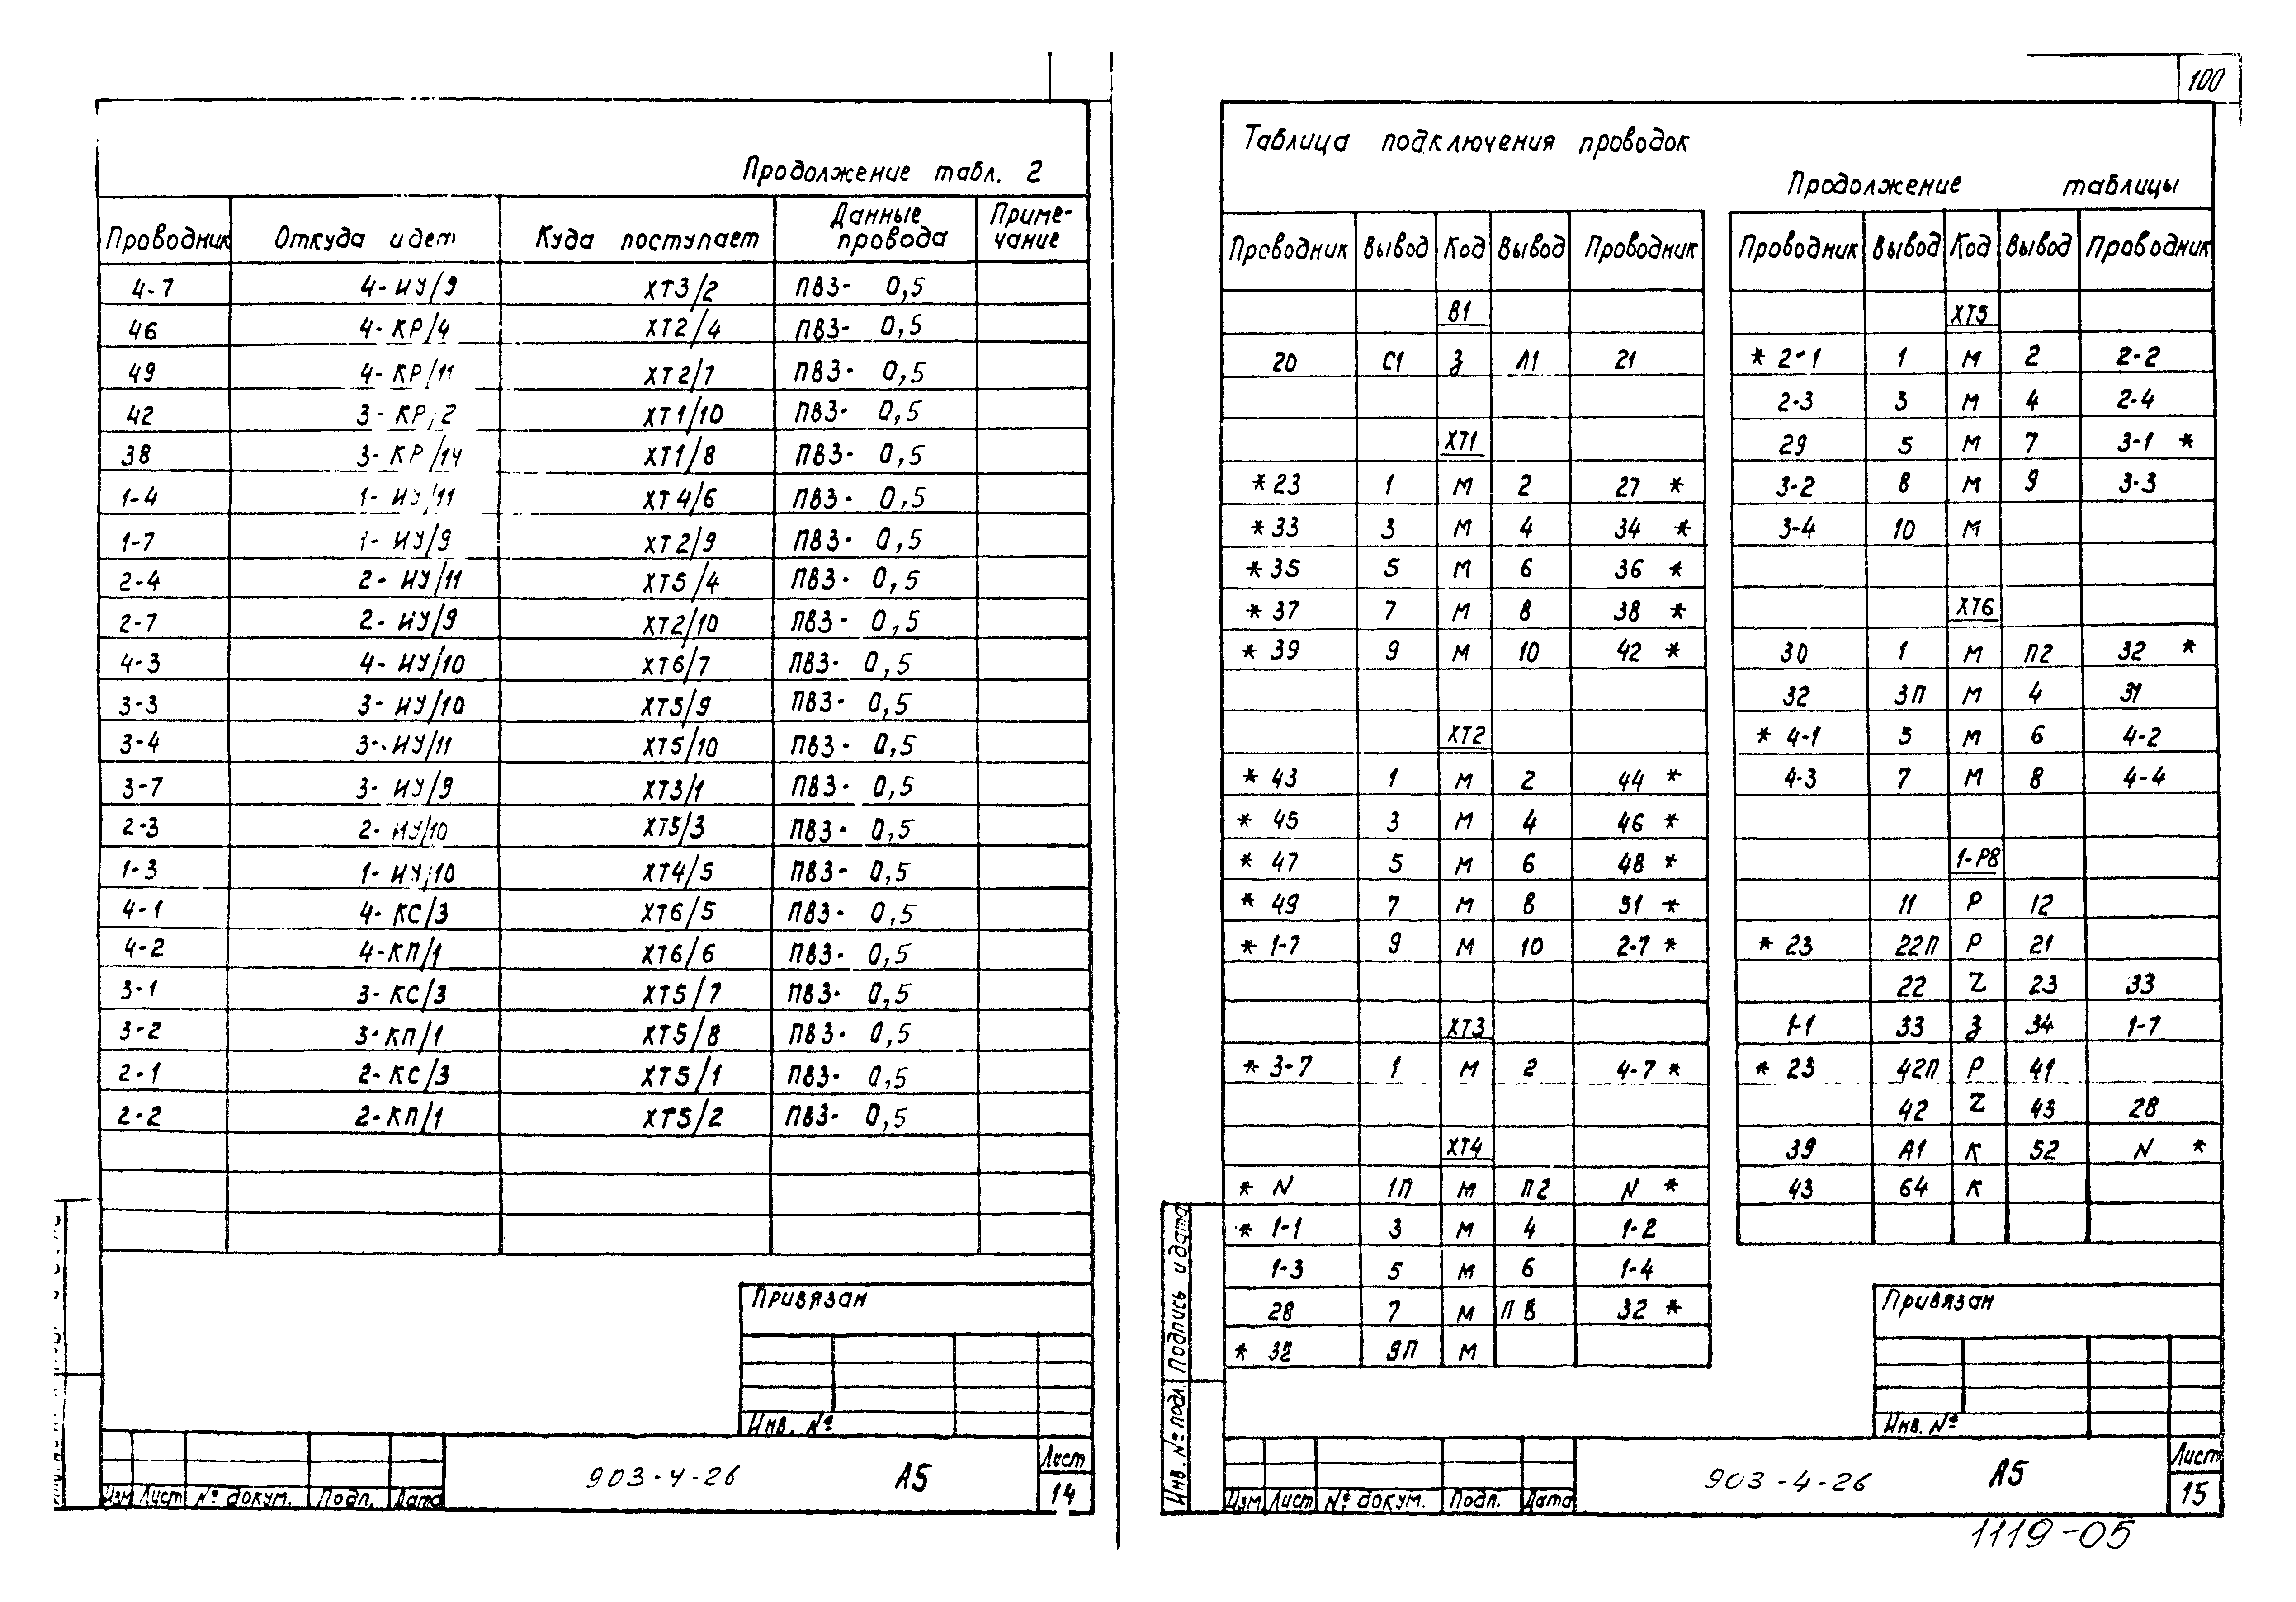 Продолжение табл. 2
Проводник Откуда идет Куда поступает Данные провода Приме-чание
4-7 4-ИУ/9 ХТ3/2 ПВ3- 0,5
46 4-КР/4 ХТ2/4 ПВ3- 0,5
49 4-КР/11 ХТ2/7 ПВ3- 0,5
42 3-КР/2 ХТ1/10 ПВ3- 0,5
38 3-КР/14 ХТ1/8 ПВ3- 0,5
1-4 1-ИУ/11 ХТ4/6 ПВ3- 0,5
1-7 1-ИУ/9 ХТ2/9 ПВ3- 0,5
2-4 2-ИУ/11 ХТ5/4 ПВ3- 0,5
2-7 2-ИУ/9 ХТ2/10 ПВ3- 0,5
4-3 4-ИУ/10 ХТ6/7 ПВ3- 0,5
3-3 3-ИУ/10 ХТ5/9 ПВ3- 0,5
3-4 3-ИУ/11 ХТ5/10 ПВ3- 0,5
3-7 3-ИУ/9 ХТ3/1 ПВ3- 0,5
2-3 2-ИУ/10 ХТ5/3 ПВ3- 0,5
1-3 1-ИУ/10 ХТ4/5 ПВ3- 0,5
4-1 4-КС/3 ХТ6/5 ПВ3- 0,5
4-2 4-КП/1 ХТ6/6 ПВ3- 0,5
3-1 3-КС/3 ХТ5/7 ПВ3- 0,5
3-2 3-КП/1 ХТ5/8 ПВ3- 0,5
2-1 2-КС/3 ХТ5/1 ПВ3- 0,5
2-2 2-КП/1 ХТ5/2 ПВ3- 0,5
Привязан
Инв. №
Изм Лист № докум. Подп. Дата
903-4-26 А5
Лист
14
100
Таблица подключения проводок
Проводник Вывод Код Вывод Проводник
В1
20 С1 З Л1 21
ХТ1
* 23 1 М 2 27 *
* 33 3 М 4 34 *
* 35 5 М 6 36 *
* 37 7 М 8 38 *
* 39 9 М 10 42 *
ХТ2
* 43 1 М 2 44 *
* 45 3 М 4 46 *
* 47 5 М 6 48 *
* 49 7 М 8 51 *
* 1-7 9 М 10 2-7 *
ХТ3
* 3-7 1 М 2 4-7 *
ХТ4
* N 1П М П2 N *
* 1-1 3 М 4 1-2
1-3 5 М 6 1-4
28 7 М П8 32 *
* 32 9П М
Продолжение таблицы
Проводник Вывод Код Вывод Проводник
ХТ5
* 2-1 1 М 2 2-2
2-3 3 М 4 2-4
29 5 М 7 3-1 *
3-2 8 М 9 3-3
3-4 10 М
ХТ6
30 1 М П2 32 *
32 3П М 4 31
* 4-1 5 М 6 4-2
4-3 7 М 8 4-4
1-Р8
11 Р 12
* 23 22П Р 21
22 Z 23 33
1-1 33 З 34 1-7
* 23 42П Р 41
42 Z 43 28
39 А1 К 52 N *
43 64 К
Привязан
Инв. №
Инв. № подл. Подпись и дата
Изм Лист № докум. Подп. Дата
903-4-26 А5
Лист
15
1119-05